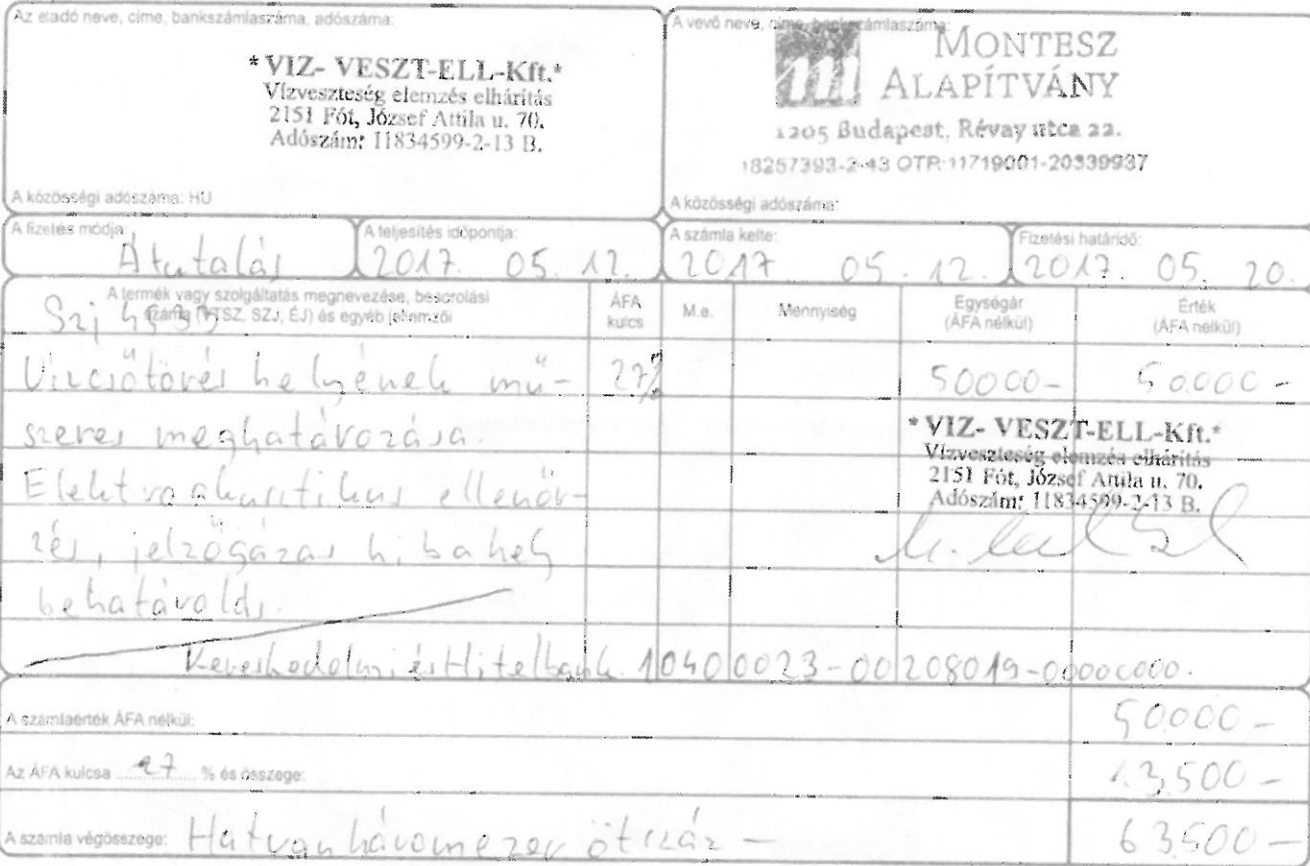 Az eladó neve, címe, bankszámlaszáma, adószáma:
*VIZ- VESZT-ELL-Kft.*
Vízveszteség elemzés elhárítás
2151 Fót, József Attila u. 70.
Adószám: 11834599-2-13 B.
A közösségi adószáma: HU
A vevő neve, címe, bankszámlaszáma:
MONTESZ
ALAPÍTVÁNY
1205 Budapest, Révay utca 22.
18257393-2-43 OTP:11719001-20339937
A közösségi adószáma:
A fizetés módja
Átutalás
A teljesítés időpontja:
2017. 05. 12.
A számla kelte:
2017 05. 12.
Fizetési határidő:
2017. 05. 20.
A termék vagy szolgáltatás megnevezése, besorolási
száma (VTSZ, SZJ, ÉJ) és egyéb jellemzői
ÁFA
kulcs
M.e.
Mennyiség
Egységár
(ÁFA nélkül)
Érték
(ÁFA nélkül)
Szj
Vízcsőtörés helyének mű- 27% 50000- 50.000-
szeres meghatározása.
Elektroakusztikus ellenőr-
zés, jelzőgázas hibahely
behatárolás.
*VIZ- VESZT-ELL-Kft.*
Vízveszteség elemzés elhárítás
2151 Fót, József Attila u. 70.
Adószám: 11834599-2-13 B.
Kereskedelmi és Hitelbank. 10400023-00208019-00000000.
A számlaérték ÁFA nélkül: 50.000-
Az ÁFA kulcsa 27 % és összege: 13.500-
A számla végösszege: Hatvanháromezer ötszáz - 63.500-